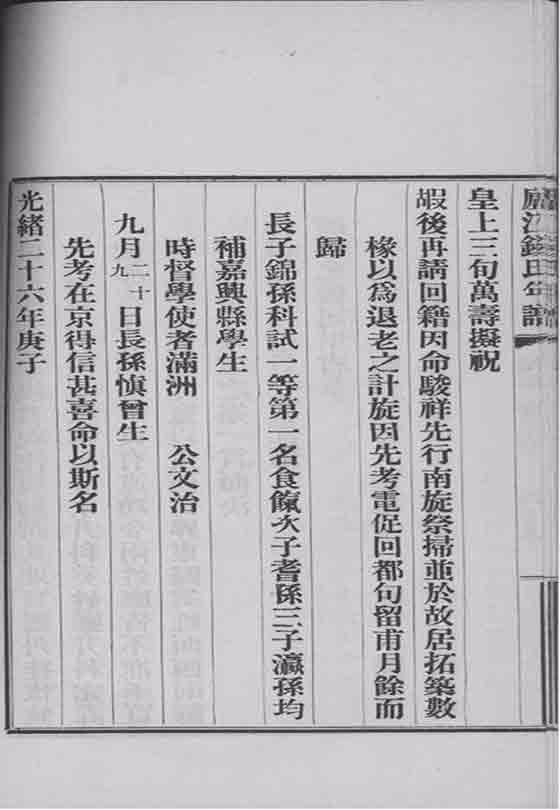 廬江錢氏年譜
皇上三旬萬壽擬祝
嘏後再請回籍因命駿祥先行南旋祭掃並於故居拓築數
椽以爲退老之計旋因先考電促回都句留甫月餘而
歸
長子錦孫科試一等第一名食餼次子耆孫三子瀛孫均
補嘉興縣學生
時督學使者滿洲　公文治
九月二十九日長孫愼曾生
先考在京得信甚喜命以斯名
光緒二十六年庚子